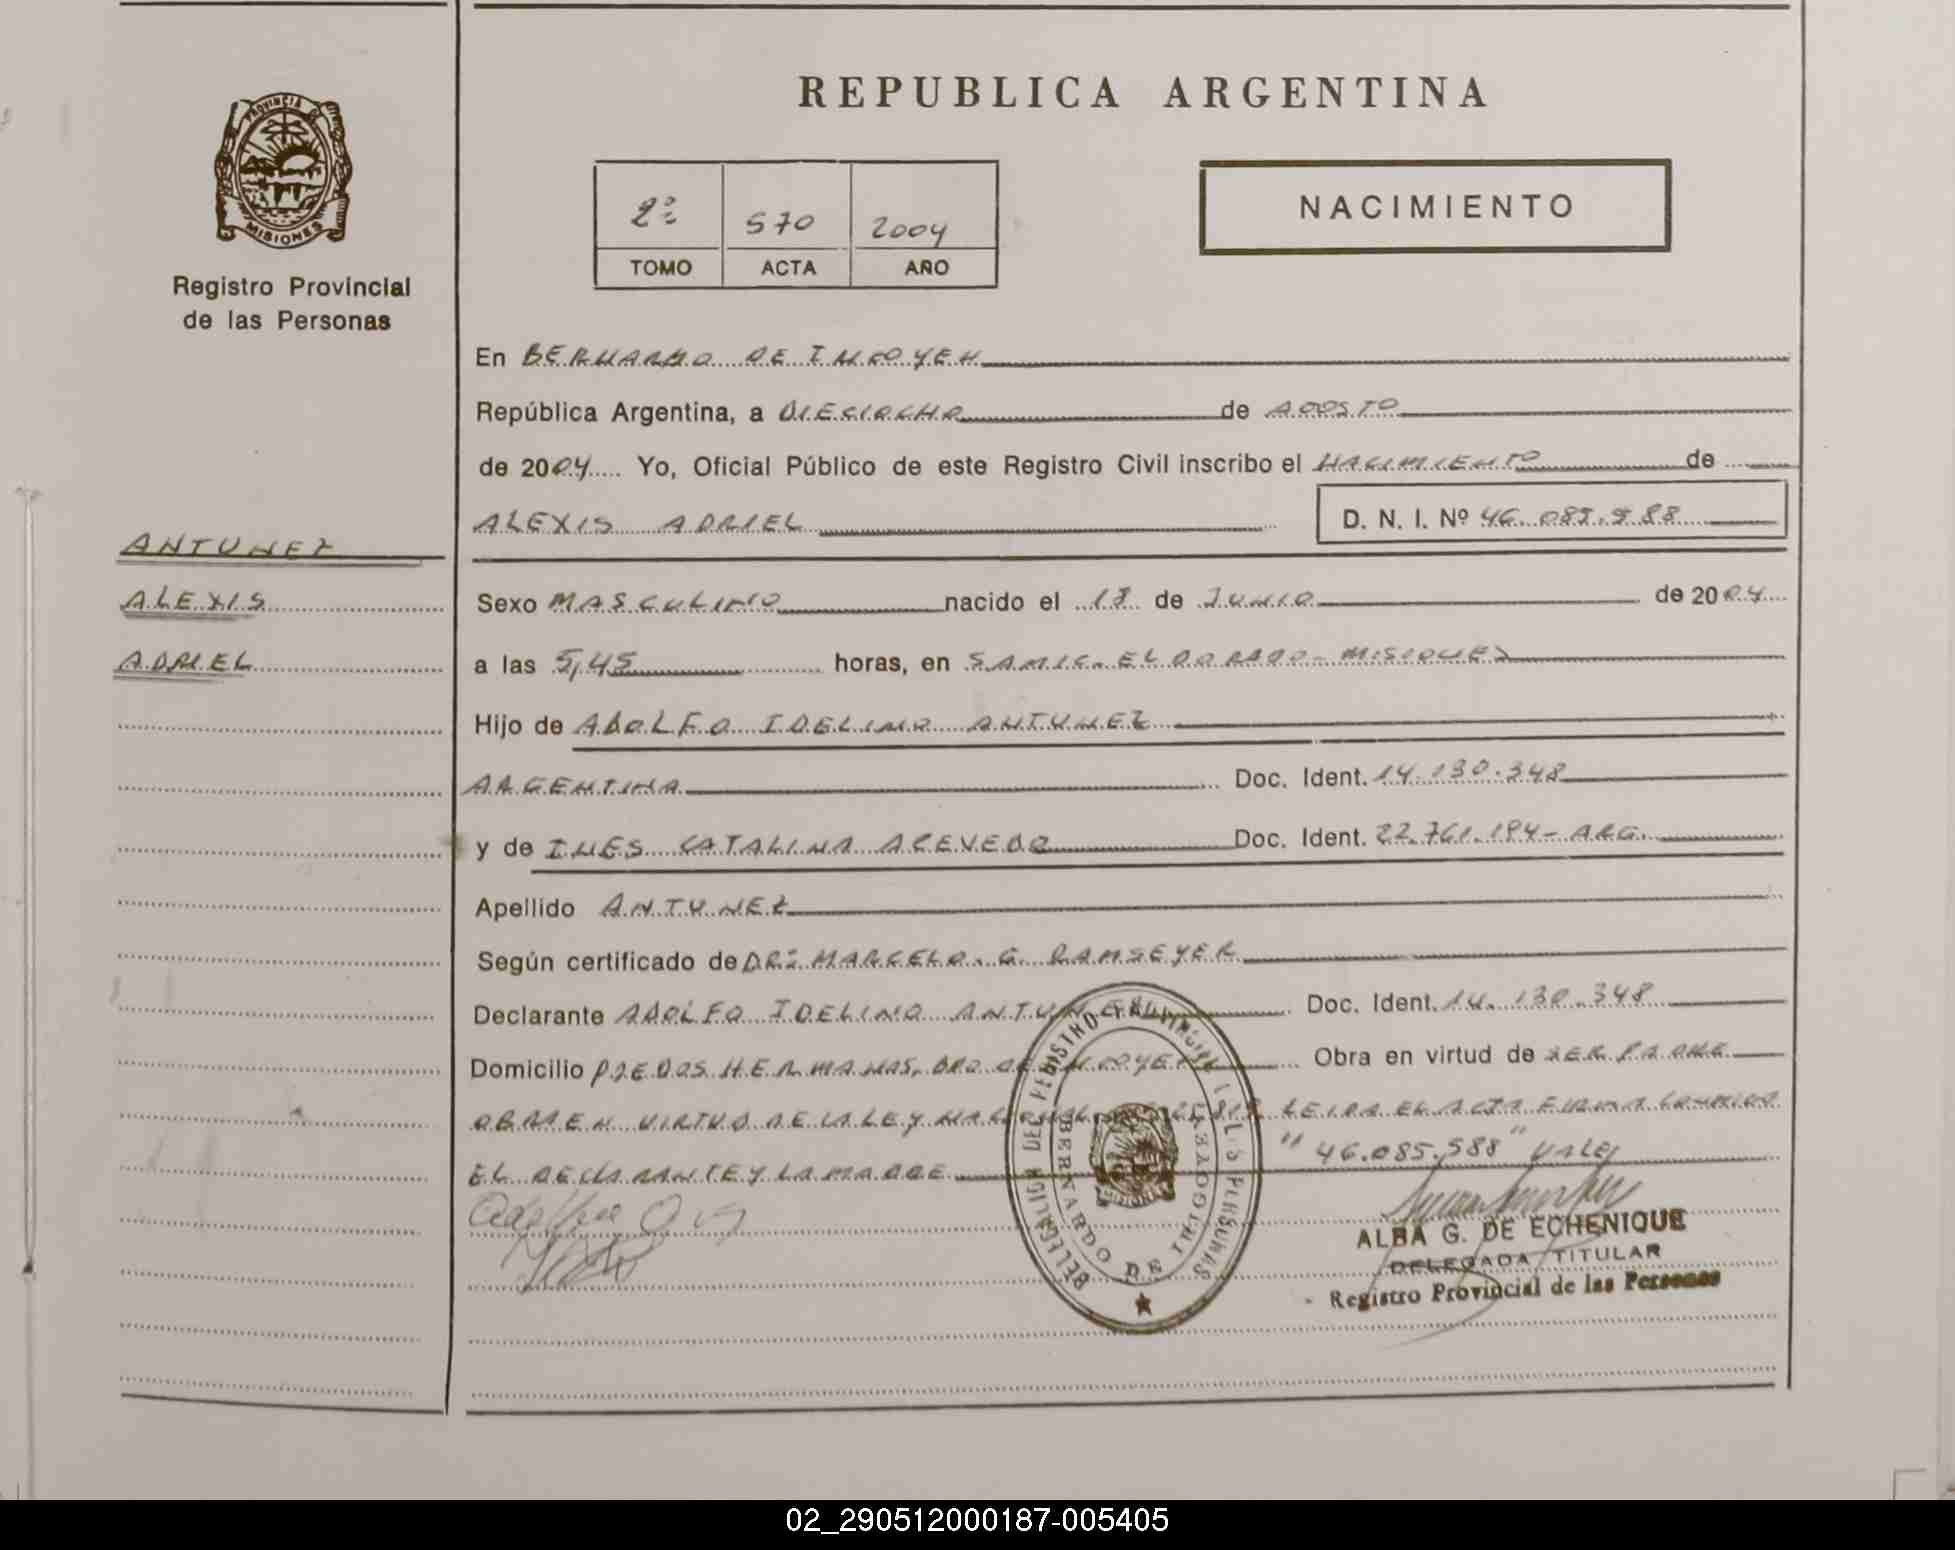 REPUBLICA ARGENTINA
PROVINCIA DE
MISIONES
Registro Provincial
de las Personas
2º 570 2004
TOMO ACTA AÑO
NACIMIENTO
En BERNARDO DE IRIGOYEN
República Argentina, a DIECIOCHO de AGOSTO
de 2004 Yo, Oficial Público de este Registro Civil inscribo el NACIMIENTO de
ALEXIS ADRIEL D. N. I. Nº 46.085.588
ANTUNEZ
ALEXIS
ADRIEL
Sexo MASCULINO nacido el 18 de JUNIO de 2004
a las 5,45 horas, en SAMIC. ELDORADO - MISIONES
Hijo de ADOLFO IDELINO ANTUNEZ
ARGENTINA Doc. Ident. 14.130.348
y de INES CATALINA ACEVEDO Doc. Ident. 22.761.194 - ARG.
Apellido ANTUNEZ
Según certificado de DR: MARCELO. G. RAMSEYER
Declarante ADOLFO IDELINO ANTUNEZ Doc. Ident. 14.130.348
Domicilio DOS HERMANAS, BDO DE IRIGOYEN Obra en virtud de SER PADRE
OBRA EN VIRTUD DE LA LEY NACIONAL LEIDA EL ACTA FIRMA CONMIGO
EL DECLARANTE Y LA MADRE "46.085.588" VALE
DEL REGISTRO PROVINCIAL DE LAS PERSONAS
BERNARDO DE IRIGOYEN
ALBA G. DE ECHENIQUE
DELEGADA TITULAR
Registro Provincial de las Personas
02_290512000187-005405